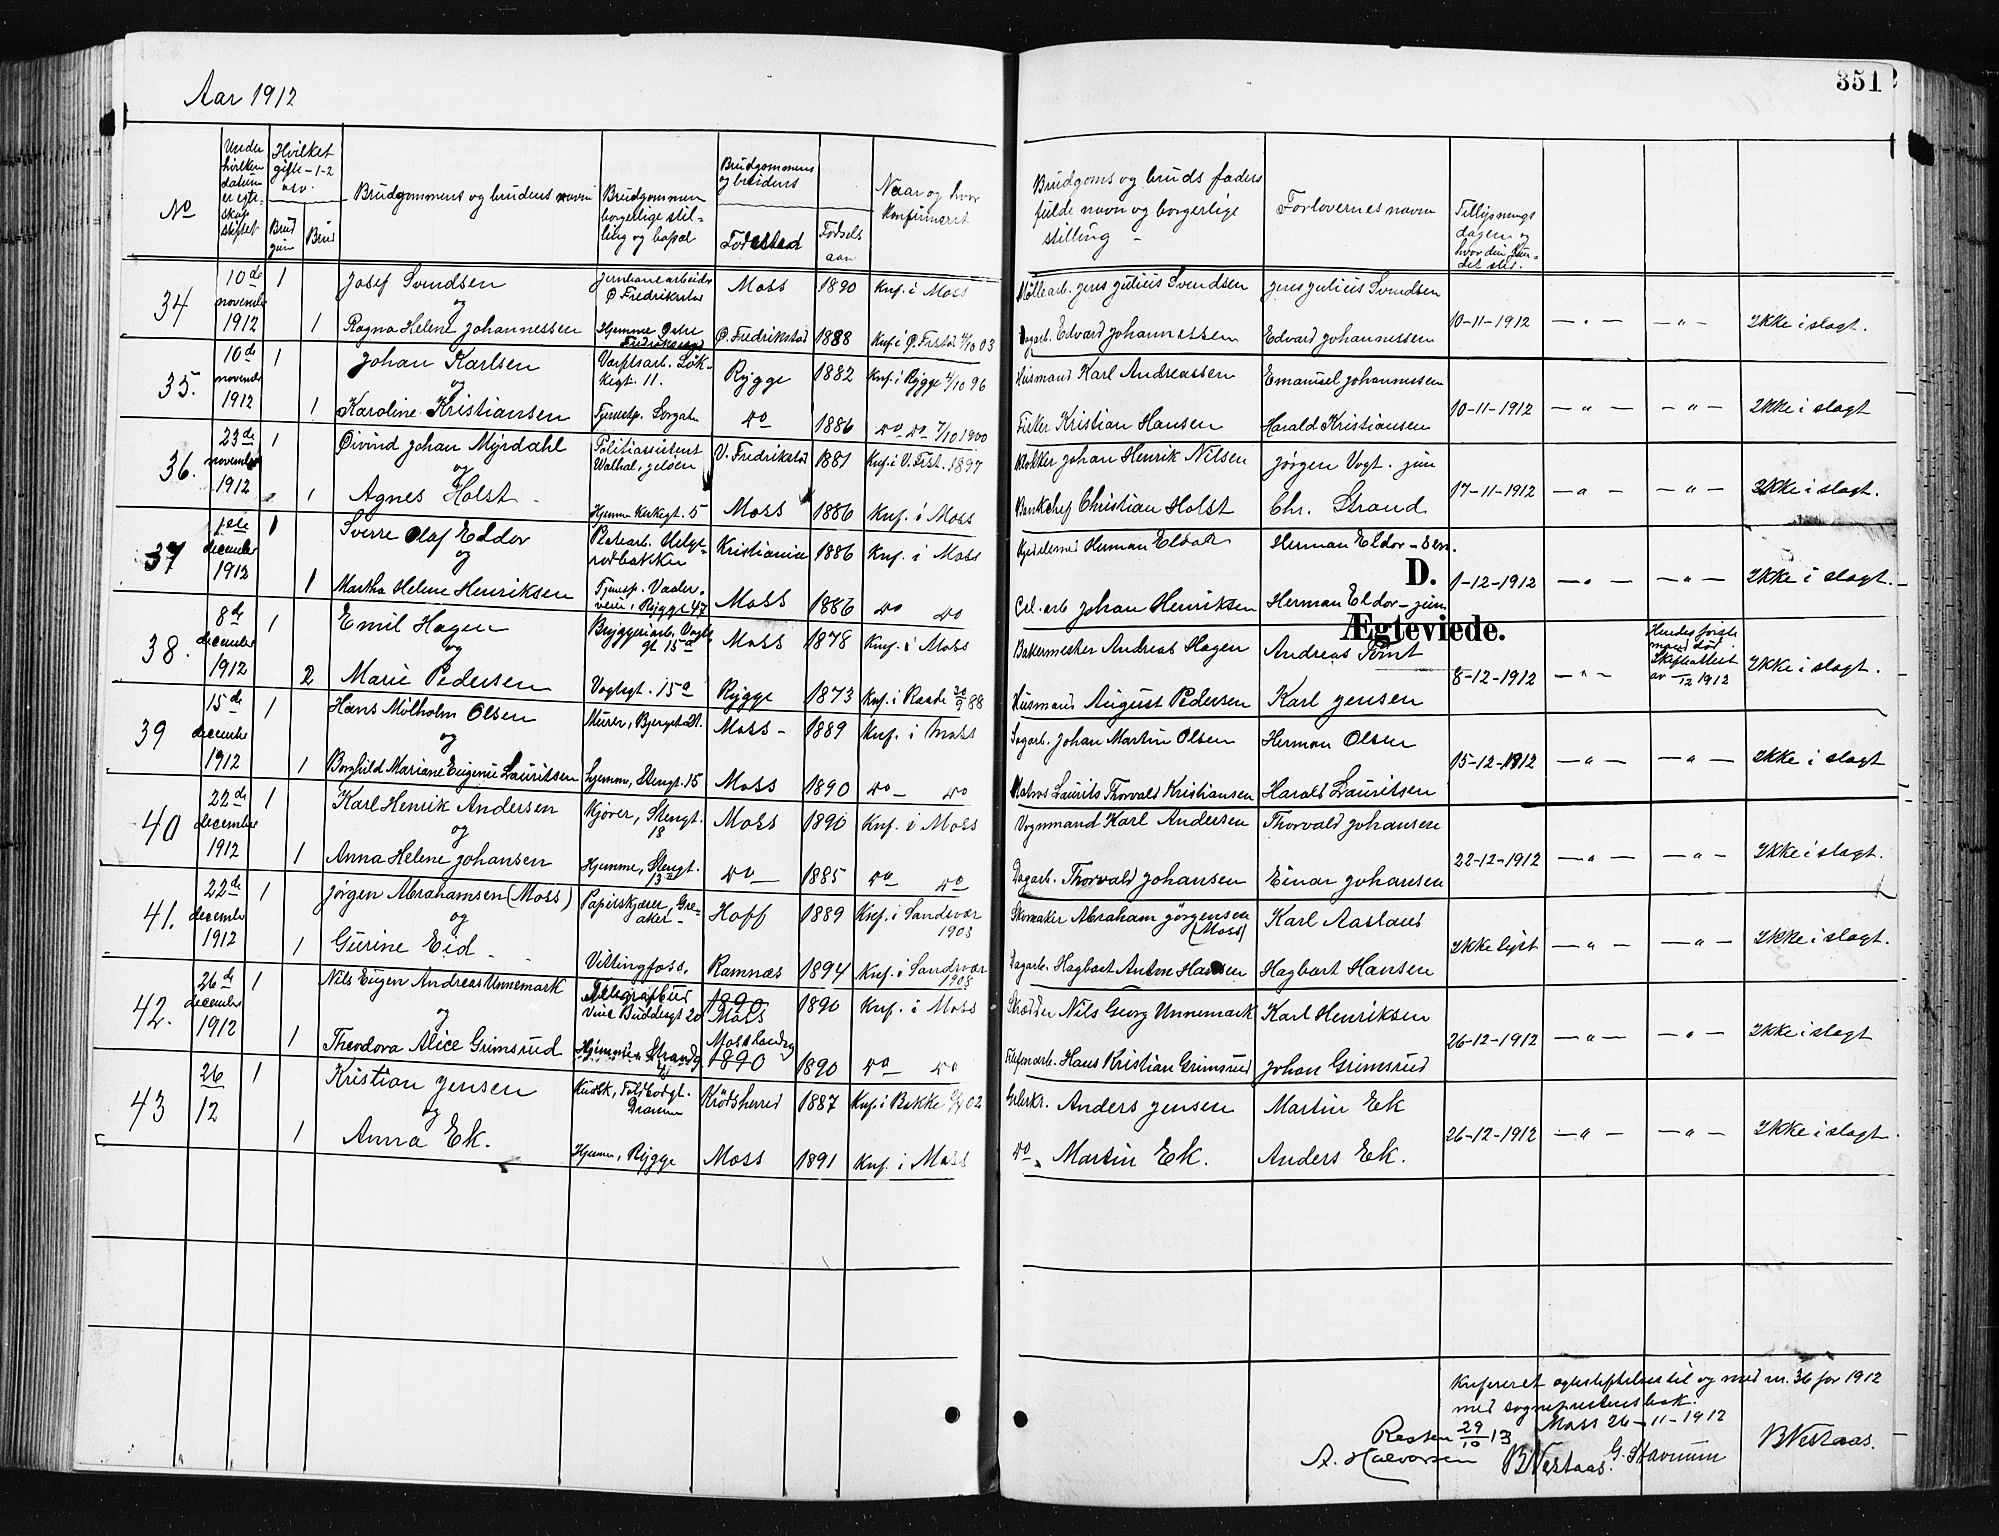 Aar 1912
351
No
Under hvilken datum er egteskap stiftet
Hvilket gifte – 1-2 osv.
Brudgom
Brud
Brudgommens og brudens navn
Brudgommens borgerlige stilling og bopæl
Brudgommens og brudens
Fødested
Fødsels aar
Naar og hvor konfirmeret
Brudgoms og bruds faders fulde navn og borgerlige stilling –
Forlovernes navn
Tillysningsdagen og
D.
Ægteviede.
34 10de november 1912 1 Josef Svendsen Ø Fredrikstad Moss 1890 Knf. i Moss Møllearb. Jens Julius Svendsen Jens Julius Svendsen
og
1 Ragna Helene Johannessen Hjemme Østre Fredrikstad Ø. Fredrikstad 1888 Knf. i Ø. Frstad 4/10 03 Dagarb. Edvard Johannessen Edvard Johannessen 10-11-1912 — " — — " — Ikke i slagt.
35. 10de november 1912 1 Johan Karlsen Løkkegt. 11. Rygge 1882 Knf. i Rygge 4/10 96 Husmand Karl Andreassen Emanuel Johannessen
og
1 Karoline Kristiansen Tjenestp. Do 1886 Do Do 7/10 1900 Fisker Kristian Hansen Harald Kristiansen 10-11-1912 — " — — " — Ikke i slagt
36. 23de november 1912 1 Øivind Johan Myrdahl Politiassistent V. Fredrikstad 1881 Knf. i V. Frst. 1897 Bøkker Johan Henrik Nilsen Jørgen Vogt. jun
og
1 Agnes Holst – Hjemme Kirkegt. 5 Moss 1886 Knf. i Moss Bankchef Christian Holst Chr. Strand 17-11-1912 — " — — " — Ikke i slagt.
37 1ste december 1912 1 Sverre Olaf Eldor Kristiania 1886 Knf. i Moss Herman Eldor Herman Eldor – sen.
og
1 Martha Helene Henriksen Tjenestp. Vaalerveien, Rygge 47 Moss 1886 Do Do Cel. arb Johan Henriksen Herman Eldor – jun 1-12-1912 — " — — " — Ikke i slagt.
38. 8de december 1912 1 Emil Hagen Bryggeriarb. Vogtsgt 15a Moss 1878 Knf. i Moss Bakermester Andreas Hagen Andreas Tømt
og
2 Marie Pedersen Vogtsgt. 15a Rygge 1873 Knf. i Raade 30/9 88 Husmand August Pedersen Karl Jensen 8-12-1912 — " — Hendes første mand død. Skifteattest av 12 1912 Ikke i slagt.
39 15de december 1912 1 Hans Mølholm Olsen Murer, Bjerget 21. Moss – 1889 Knf. i Moss Sagarb. Johan Martin Olsen Herman Olsen
og
1 Borghild Mariane Eugenie Lauritsen Hjemme, Stengt. 15 Moss 1890 Do – Do Matros Laurits Thorvald Kristiansen Harald Lauritsen 15-12-1912 — " — — " — Ikke i slagt
40 22de december 1912 1 Karl Henrik Andersen Kjører, Stengt. 18 Moss 1890 Knf. i Moss Vognmand Karl Andersen Thorvald Johansen
og
1 Anna Helene Johansen Hjemme, Stengt. 13 Do 1885 Do Do Dagarb. Thorvald Johansen Einar Johansen 22-12-1912 — " — — " — Ikke i slagt.
41. 22de december 1912 1 Jørgen Abrahamsen (Moss) Papirskjærer, Greaker – Hoff 1889 Knf. i Sandsvær 1903 Skomaker Abraham Jørgensen (Moss) Karl Aasland
og
1 Gurine Eid Vittingfoss, Ramnæs 1894 Knf. i Sandsvær 1908 Dagarb. Hagbart Anton Hansen Hagbart Hansen Ikke lyst — " — — " — Ikke i slagt.
42. 26de december 1912 1 Nils Eugen Andreas Unnemark Telegrafbud 20 1890 Moss 1890 Knf. i Moss Skrædder Nils Georg Unnemark Karl Henriksen
og
1 Theodora Alice Grimsrud Hjemme Strandg. Mosslandsog 1890 1890 Do Do Telefonarb. Hans Kristian Grimsrud Johan Grimsrud 26-12-1912 — " — — " — Ikke i slagt
43 26/12 1 Kristian Jensen Kudsk, Toldbodgt. Drammen Krødsherred 1887 Knf. i 02 Anders Jensen Martin Ek
og
1 Anna Ek. Hjemme, Rygge Moss 1891 Knf. i Moss Do. Martin Ek. Anders Ek. 26-12-1912 — " — — " — Ikke i slagt
Knfereret egteskaper til og med nr. 36 for 1912
med sogneprestens bok.
Moss 26-11-1912
Resten 29/10 13
A. Halvorsen BVestaas. G. Stavrum BVestaas.